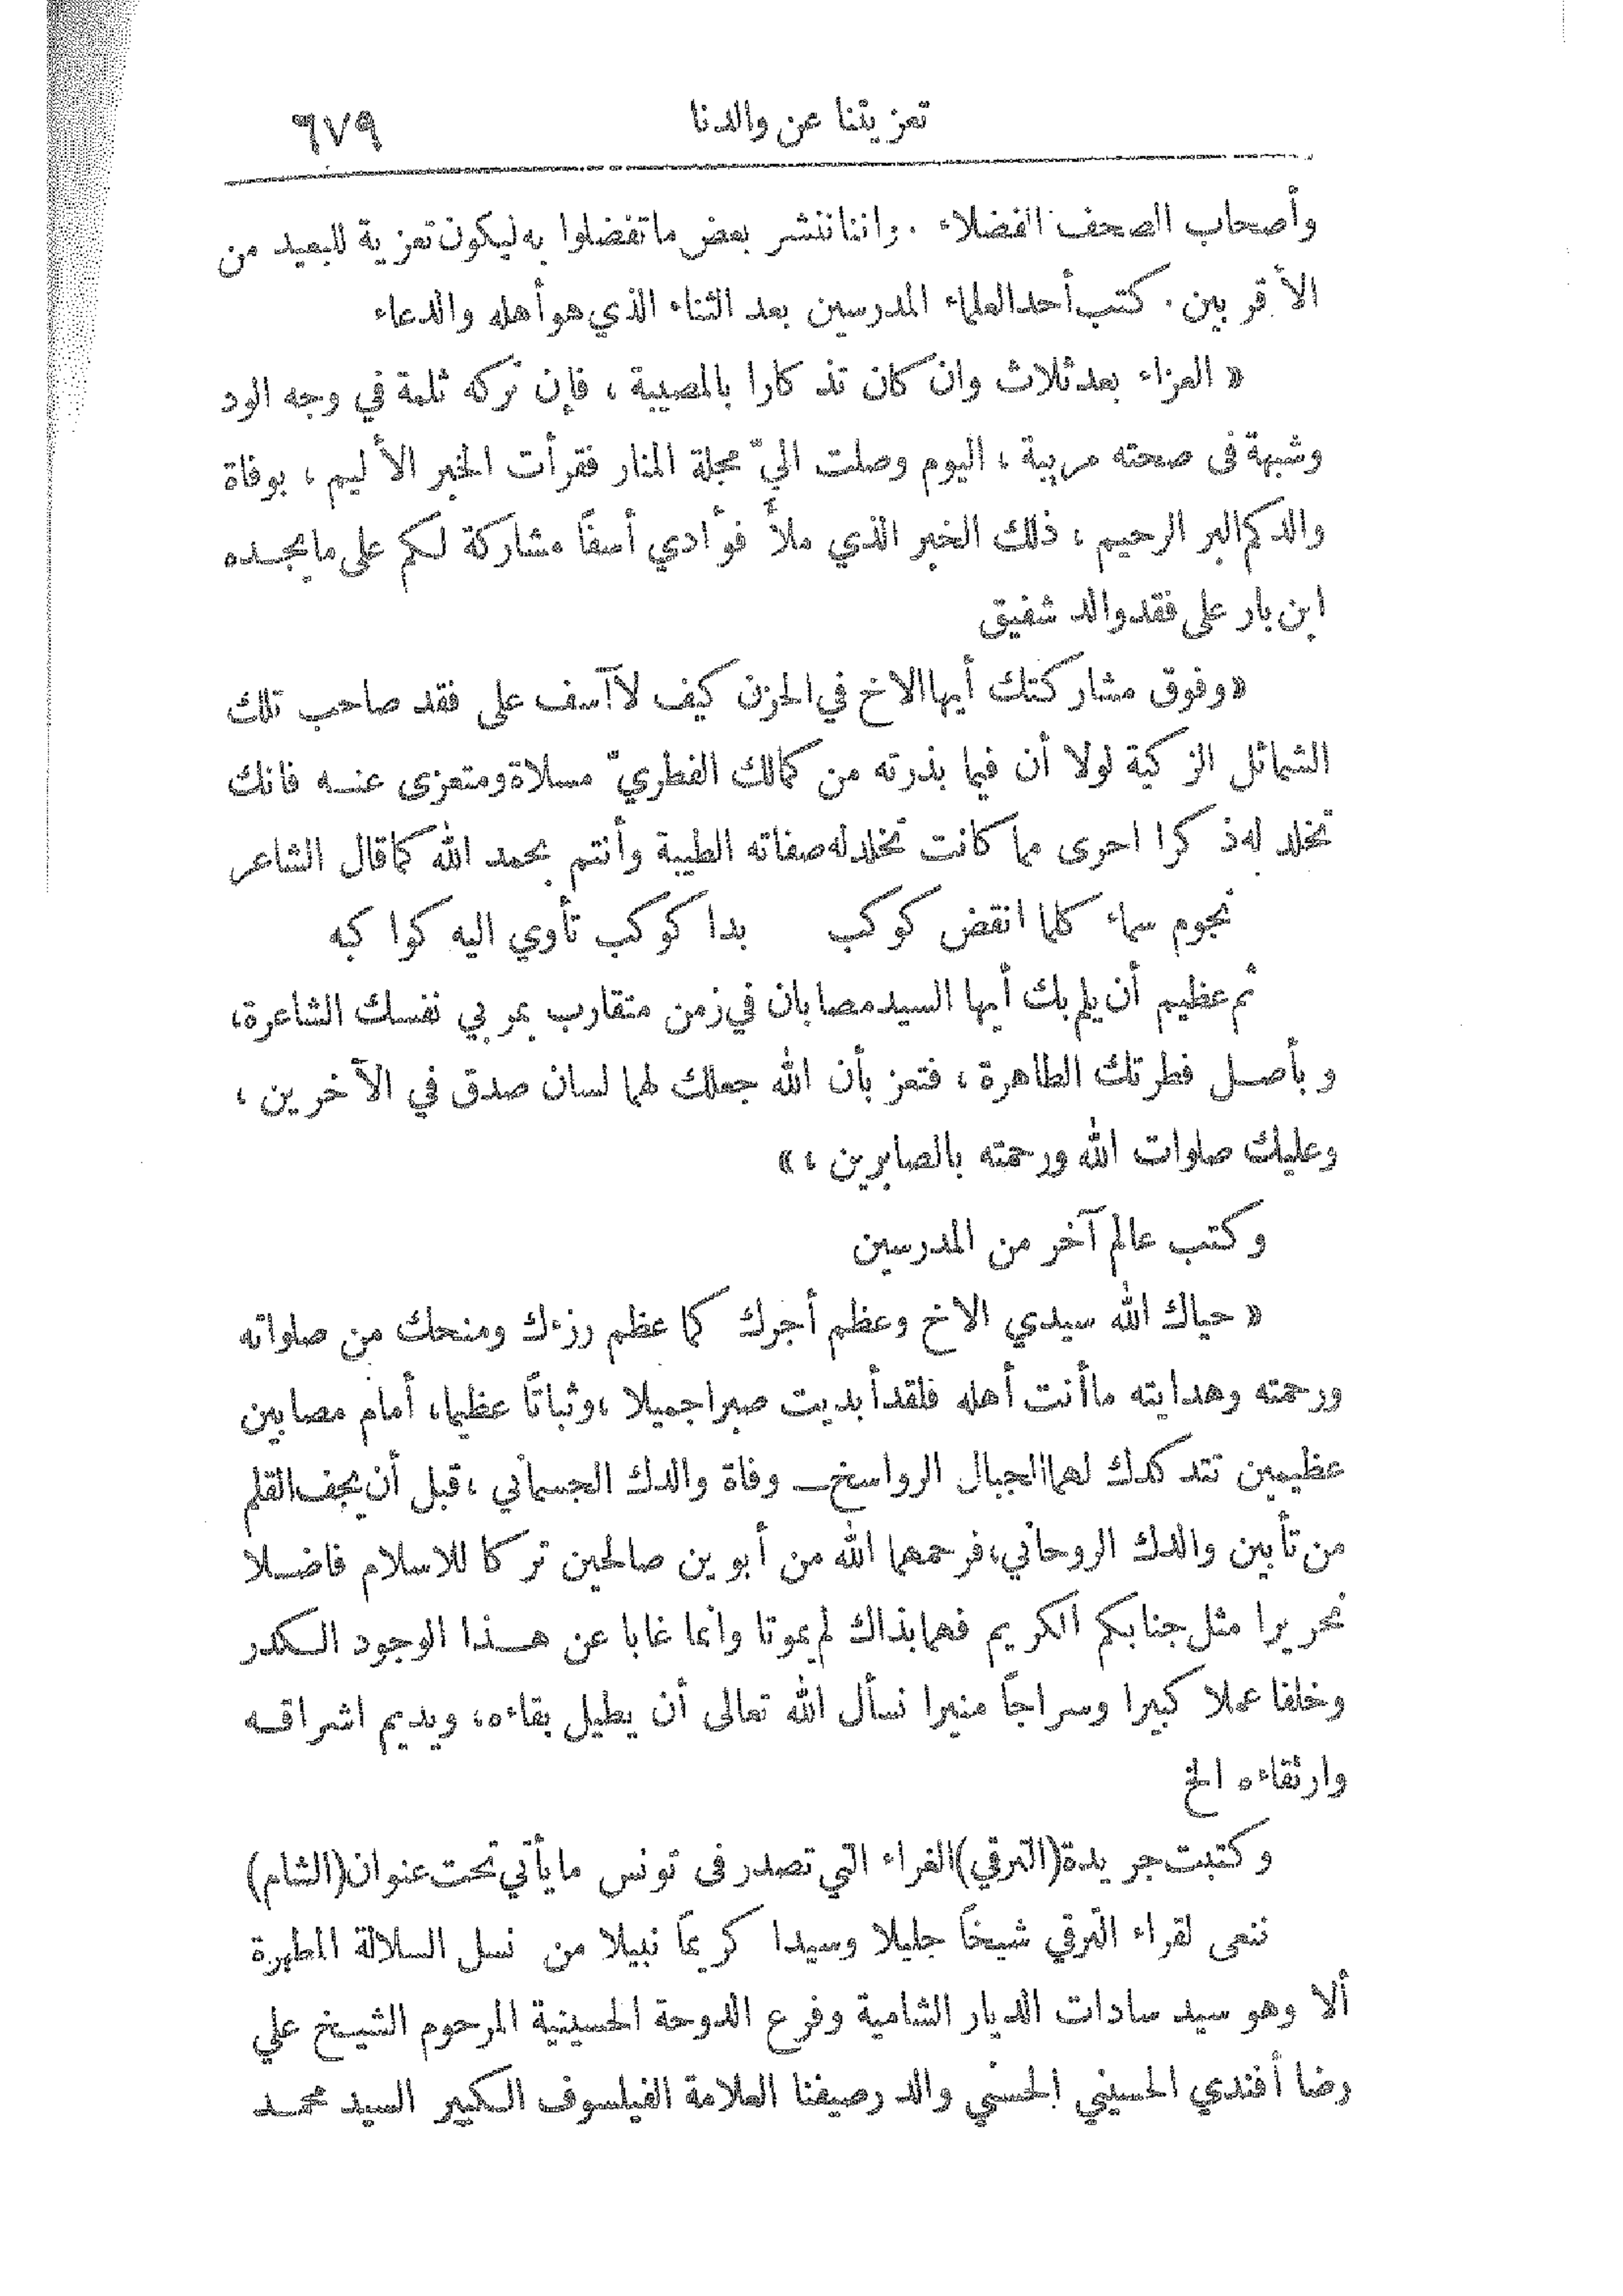 تعزيتنا عن والدنا ٦٧٩
وأصحاب الصحف الفضلاء . واننا ننشر بعض ما تفضلوا به ليكون تعزية للبعيد من
الأقربين . كتب أحد العلماء المدرسين بعد الثناء الذي هو أهله والدعاء
« العزاء بعد ثلاث وان كان تذكارا بالمصيبة ، فإن تركه ثلمة في وجه الود
وشبهة فى صحته مريبة ، اليوم وصلت اليّ مجلة المنار فقرأت الخبر الأليم ، بوفاة
والدكم البر الرحيم ، ذلك الخبر الذي ملأ فؤادي أسفًا مشاركة لكم على ما يجده
ابن بار على فقد والد شفيق
«وفوق مشاركتك أيها الاخ في الحزن كيف لا آسف على فقد صاحب تلك
الشمائل الزكية لولا أن فيما بذرته من كمالك الفطريّ مسلاة ومتعزى عنه فانك
تخلد له ذكرا احرى مما كانت تخلد له صفاته الطيبة وأنتم بحمد الله كما قال الشاعر
نجوم سماء كلما انقض كوكب بدا كوكب تأوي اليه كواكبه
ثم عظيم أن يلم بك أيها السيد مصابان في زمن متقارب بمربي نفسك الشاعرة،
وبأصل فطرتك الطاهرة ، فتعز بأن الله جعلك لهما لسان صدق في الآخرين ،
وعليك صلوات الله ورحمته بالصابرين ، »
وكتب عالم آخر من المدرسين
« حياك الله سيدي الاخ وعظم أجرك كما عظم رزءك ومنحك من صلواته
ورحمته وهدايته ما أنت أهله فلقد أبديت صبرا جميلا ، وثباتًا عظيما، أمام مصابين
عظيمين تتدكدك لهما الجبال الرواسخ ــ وفاة والدك الجسماني ، قبل أن يجف القلم
من تأبين والدك الروحاني، فرحمهما الله من أبوين صالحين تركا للاسلام فاضلا
نحريرا مثل جنابكم الكريم فهما بذاك لم يموتا وانما غابا عن هذا الوجود الكدر
وخلفا عملا كبيرا وسراجًا منيرا نسأل الله تعالى أن يطيل بقاءه، ويديم اشراقه
وارتقاءه الخ
وكتبت جريدة (الترقي) الغراء التي تصدر فى تونس ما يأتي تحت عنوان (الشام)
ننعى لقراء الترقي شيخًا جليلا وسيدا كريمًا نبيلا من نسل السلالة المطهرة
ألا وهو سيد سادات الديار الشامية وفرع الدوحة الحسينية المرحوم الشيخ علي
رضا أفندي الحسيني الحسني والد رصيفنا العلامة الفيلسوف الكبير السيد محمد